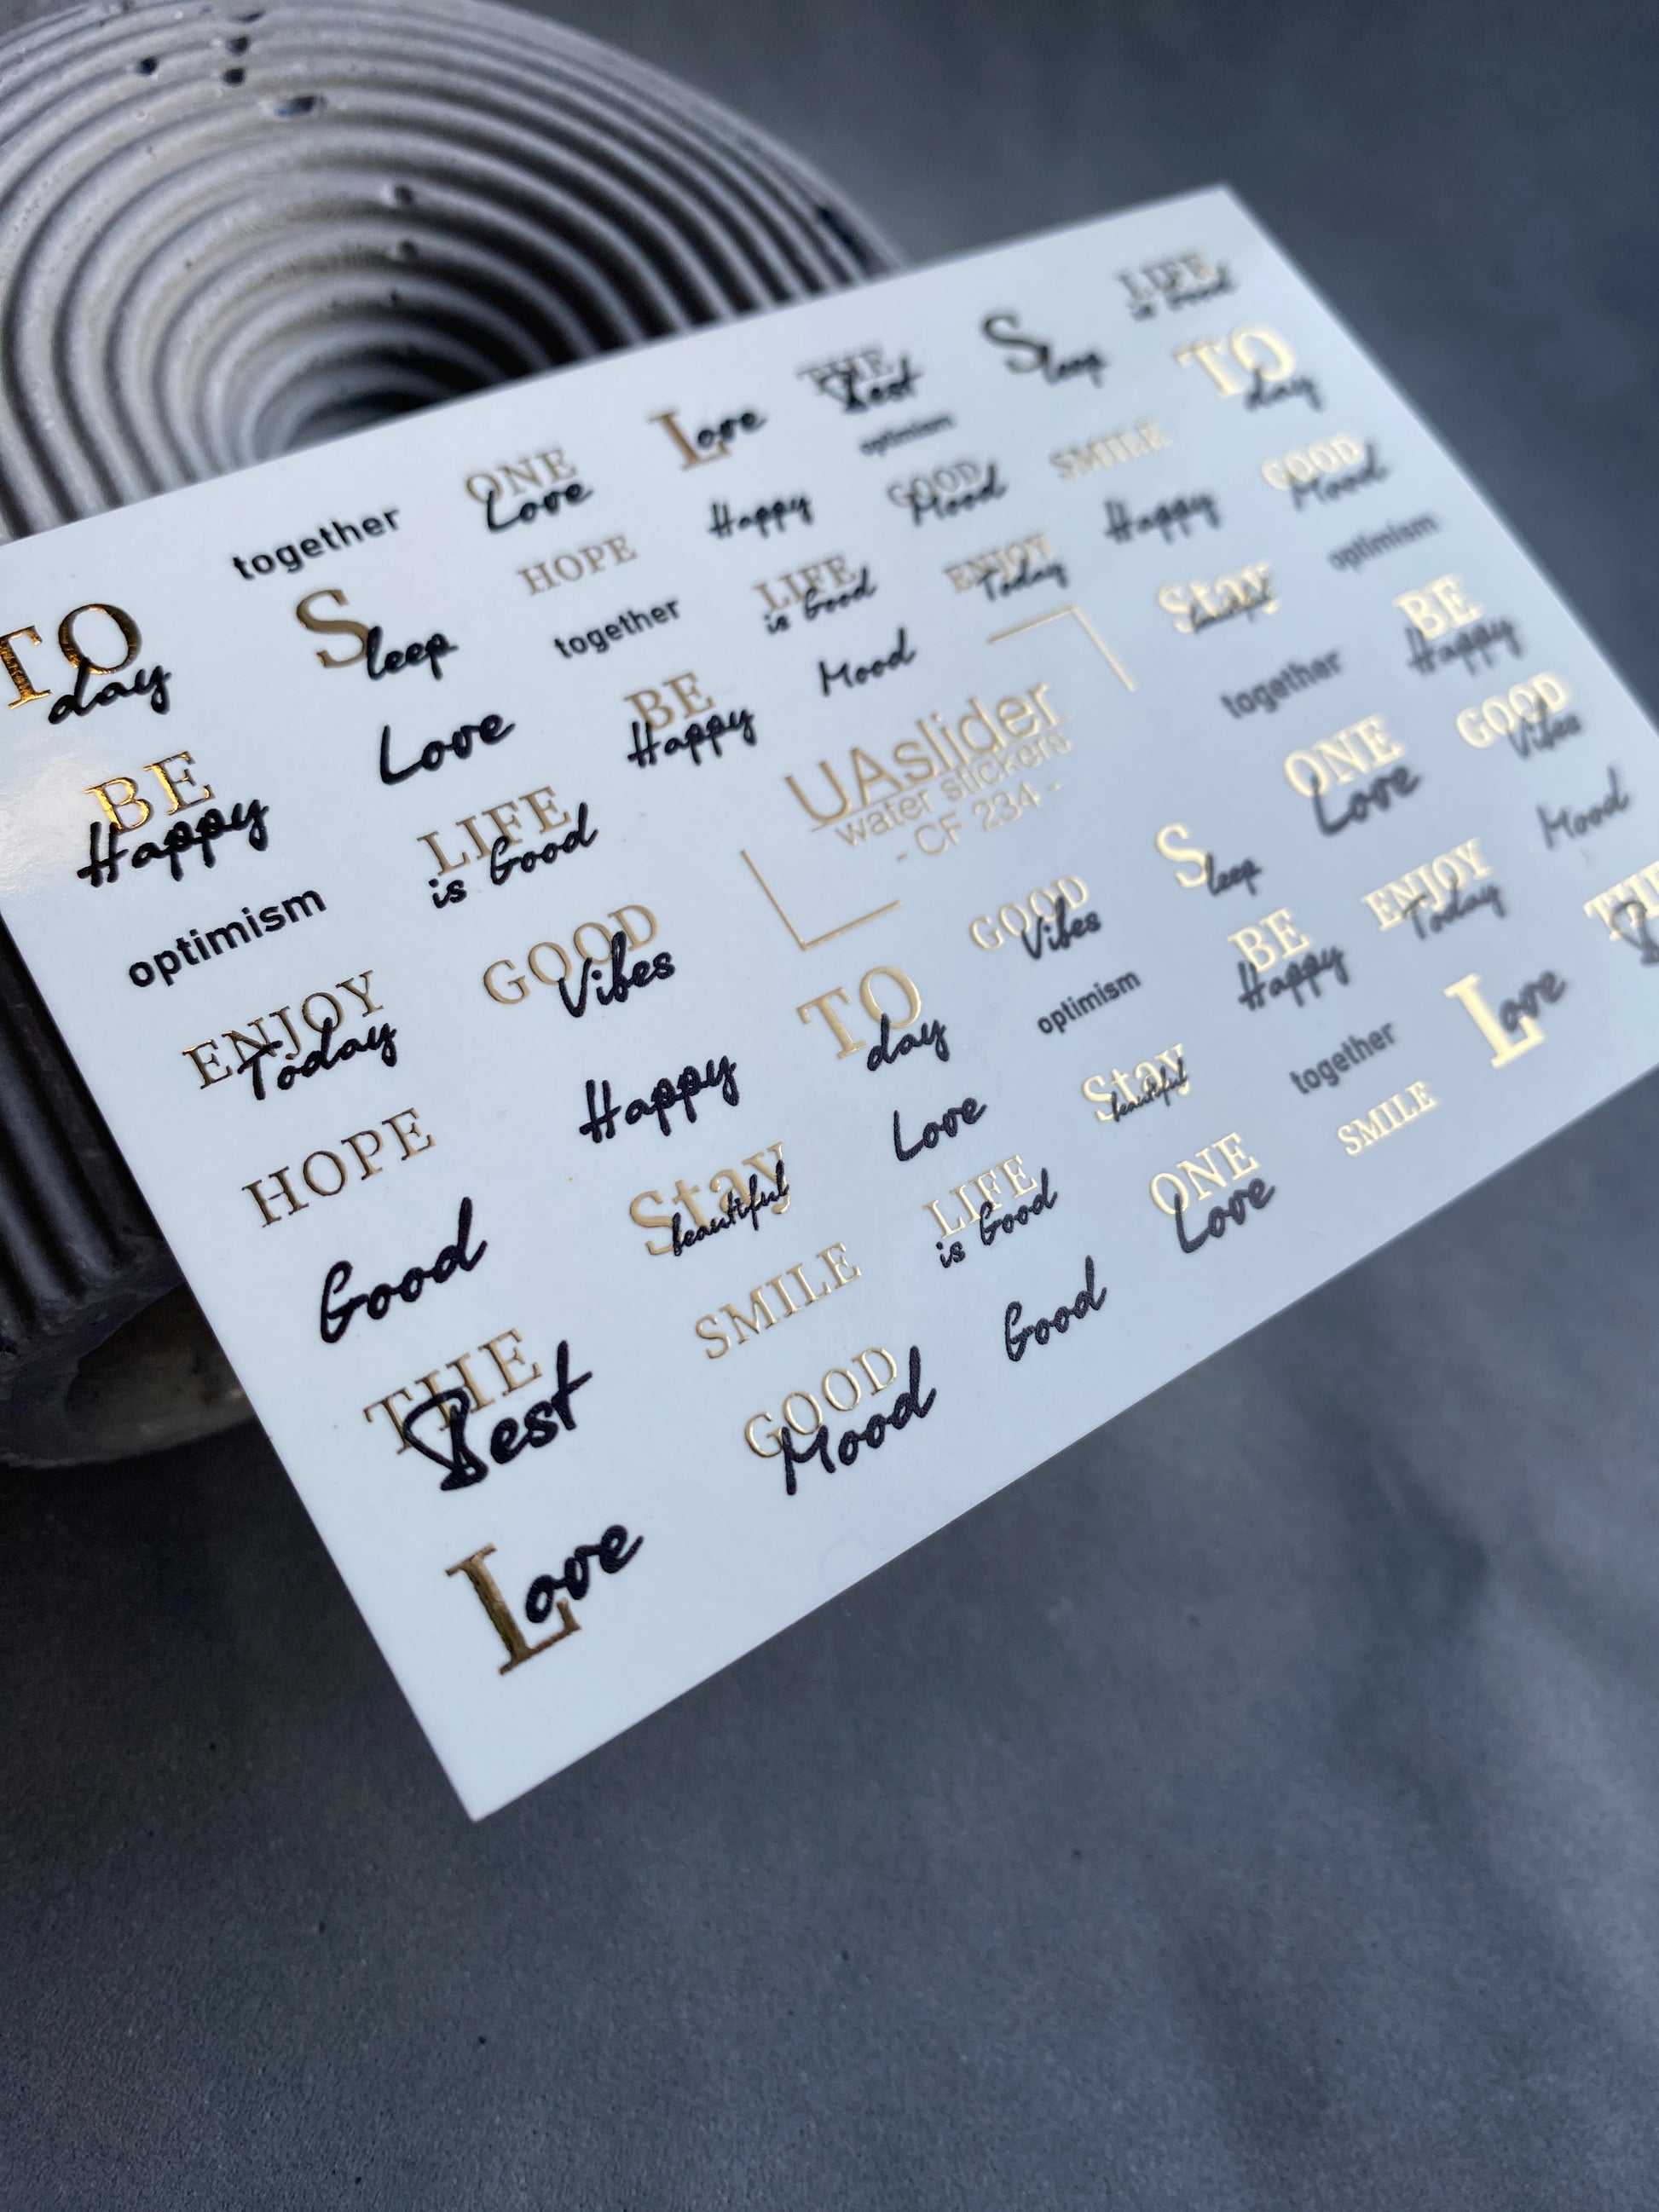 LIFE
is Good
THE
Best
Sleep
TO
day
ONE
Love
Love
optimism
together
HOPE
Happy
GOOD
Mood
SMILE
GOOD
Mood
TO
day
Sleep
together
LIFE
is Good
ENJOY
Today
Happy
optimism
Love
BE
Happy
Mood
Stay
BE
Happy
BE
Happy
LIFE
is Good
UAslider
water stickers
- CF 234 -
together
GOOD
Vibes
optimism
GOOD
Vibes
ONE
Love
Mood
ENJOY
Today
GOOD
Vibes
Sleep
ENJOY
Today
THE
HOPE
Happy
TO
day
optimism
BE
Happy
Love
Good
Stay
beautiful
Love
Stay
beautiful
together
THE
Best
SMILE
LIFE
is Good
ONE
Love
SMILE
Love
GOOD
Mood
Good